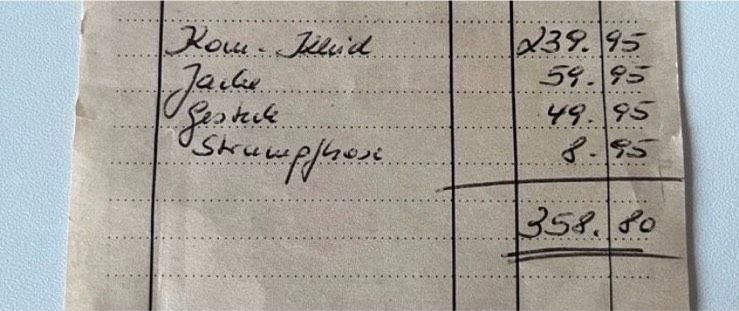 Kom-Kleid 239.95
Jacke 59.95
Gesteck 49.95
Strumpfhose 8.95
358.80